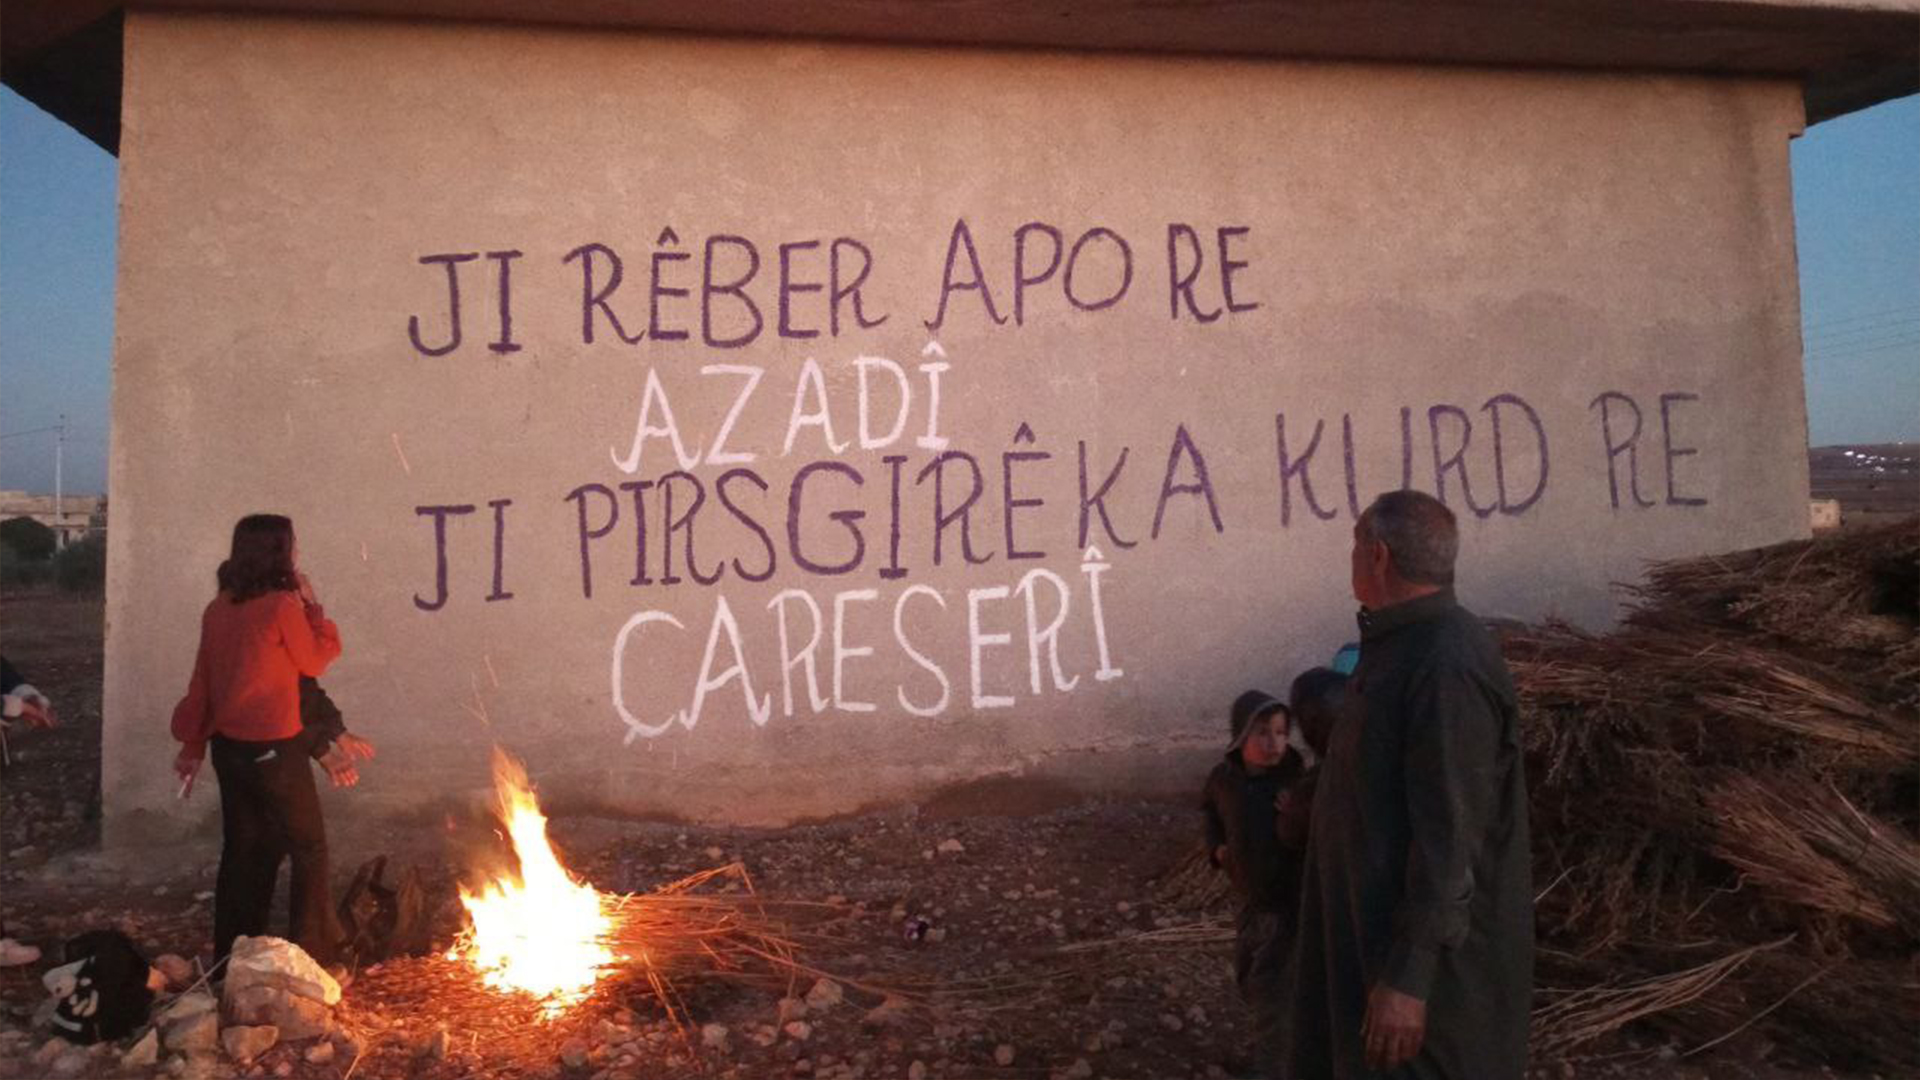 JI RÊBER APO RE
AZADÎ
JI PIRSGIRÊKA KURD RE
ÇARESERÎ